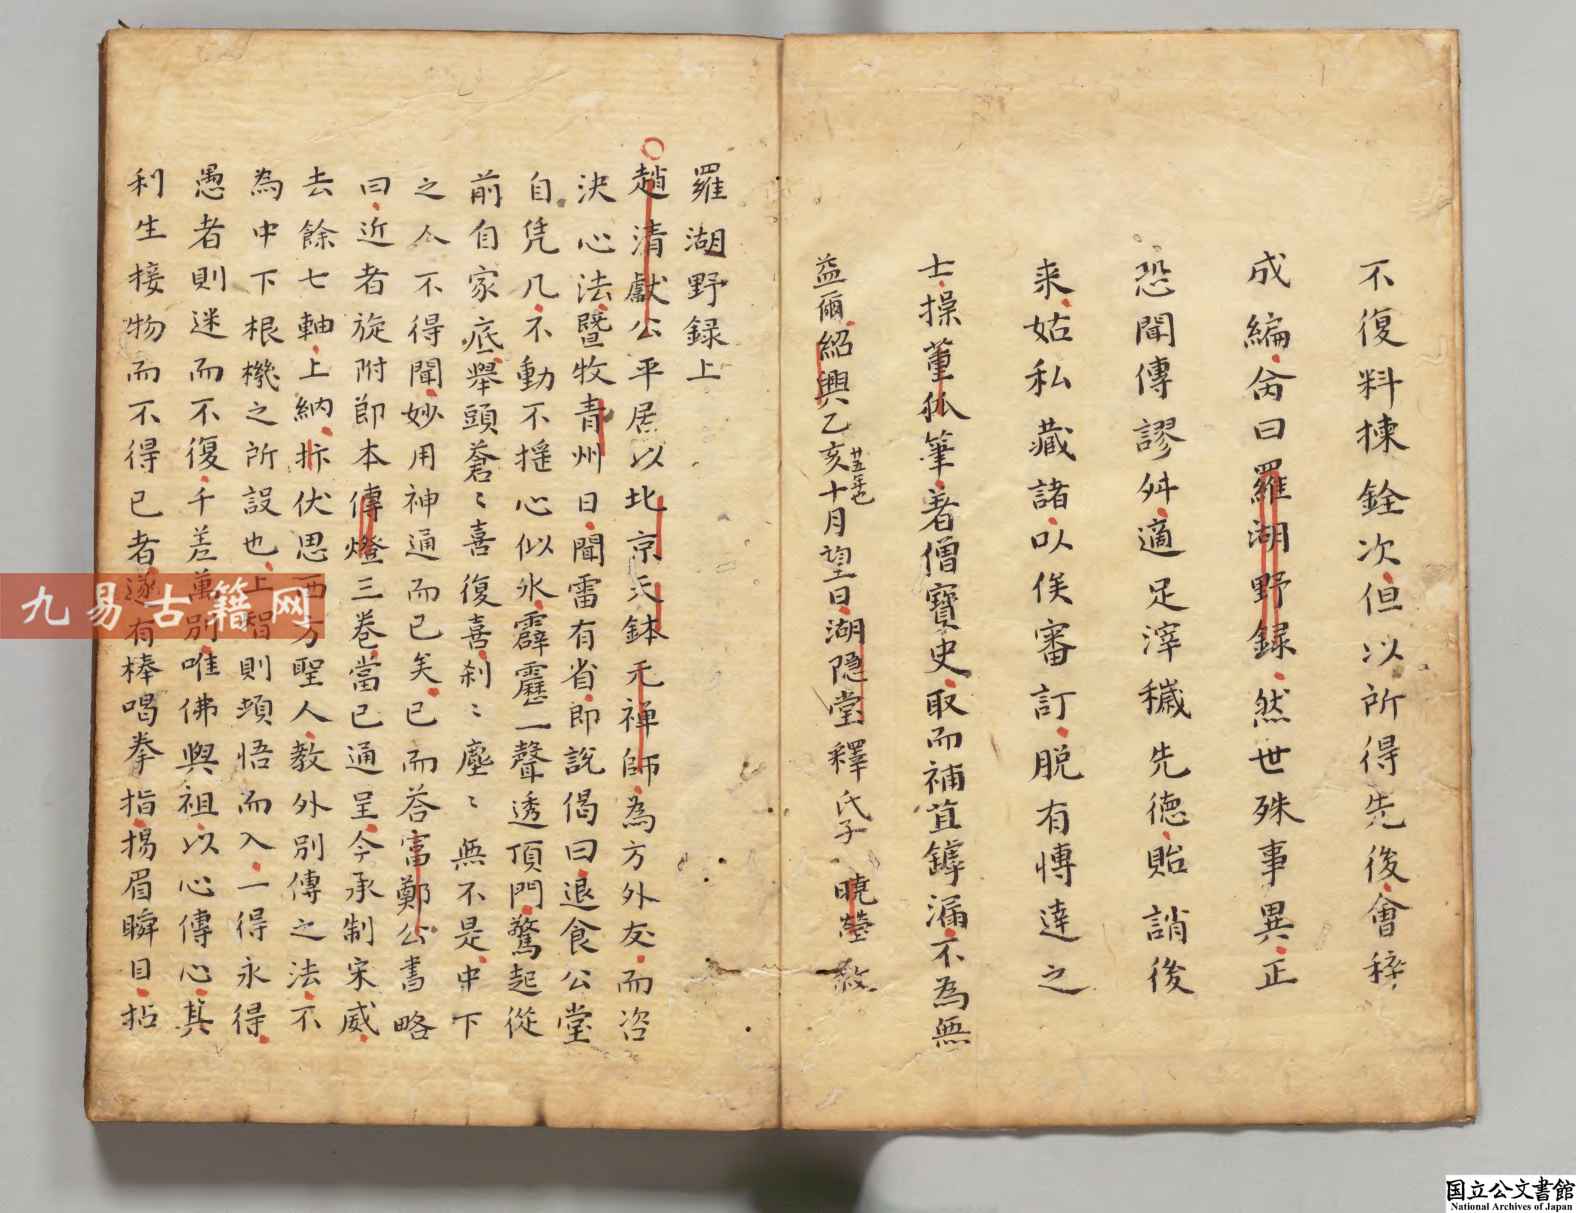 不復料揀銓次但以所得先後會稡
成編命曰羅湖野録然世殊事異正
恐聞傳謬舛適足滓穢先德貽誚後
来姑私藏諸以俟審訂脱有愽達之
士操董狐筆著僧寶史取而補苴罅漏不為無
益爾紹興乙亥十月望日湖隐堂釋氏子曉瑩敘
廿五年也
羅湖野録上
趙清獻公平居以北京天鉢元禅師為方外友而咨
決心法暨牧青州日聞雷有省即說偈曰退食公堂
自凭几不動不揺心似氷霹靂一聲透頂門驚起從
前自家底舉頭蒼〻喜復喜刹〻塵〻無不是中下
之人不得聞妙用神通而已矣已而荅富鄭公書略
曰近者旋附節本傳燈三巻當已通呈今承制宋威
去餘七軸上納抃伏思西方聖人教外別傳之法不
為中下根機之所設也上智則頓悟而入一得永得
愚者則迷而不復千差萬別唯佛與祖以心傳心其
利生接物而不得已者遂有棒喝拳指揚眉瞬目拈
九易古籍网
国立公文書館
National Archives of Japan